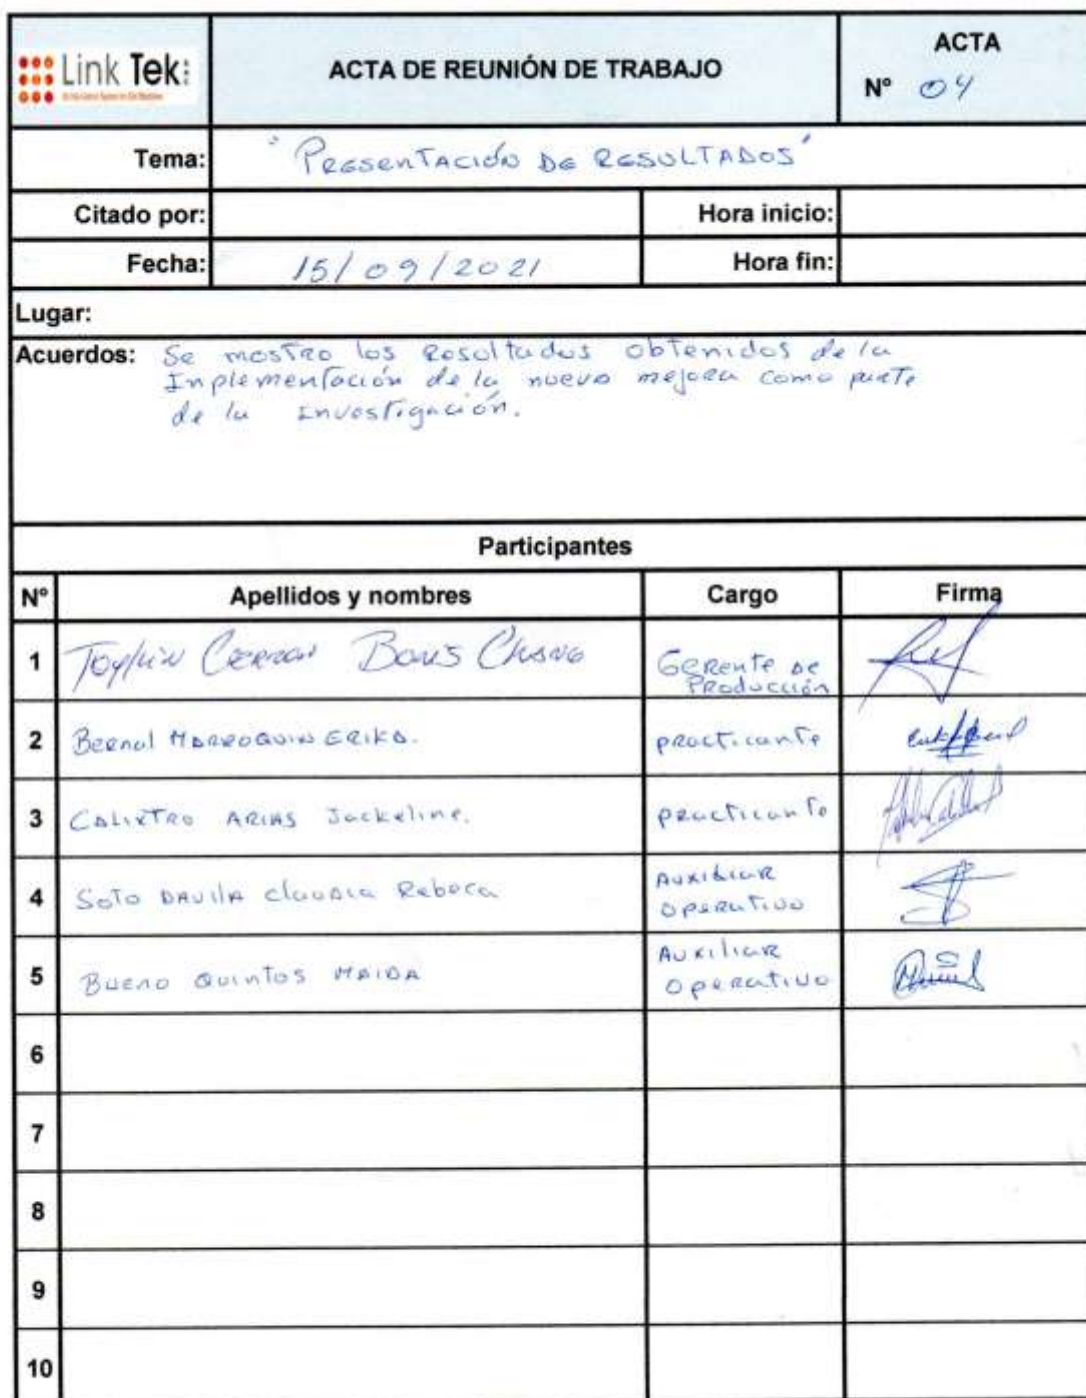 Link Tek
ACTA DE REUNIÓN DE TRABAJO
ACTA
N° 04
Tema: "PRESENTACIÓN DE RESULTADOS"
Citado por:
Hora inicio:
Fecha: 15/09/2021
Hora fin:
Lugar:
Acuerdos: Se mostro los Resultados obtenidos de la
Inplementación de la nueva mejora como parte
de la Investigación.
Participantes
N° Apellidos y nombres Cargo Firma
1 Cerron Gerente de
Producción
2 Bernal MARROQUIN ERIKA. practicante
3 CALIXTRO ARIAS Jackeline. practicante
4 SOTO DAVILA CLAUDIA Rebeca Auxiliar
operativo
5 BUENO QUINTOS MAIDA Auxiliar
operativo
6
7
8
9
10